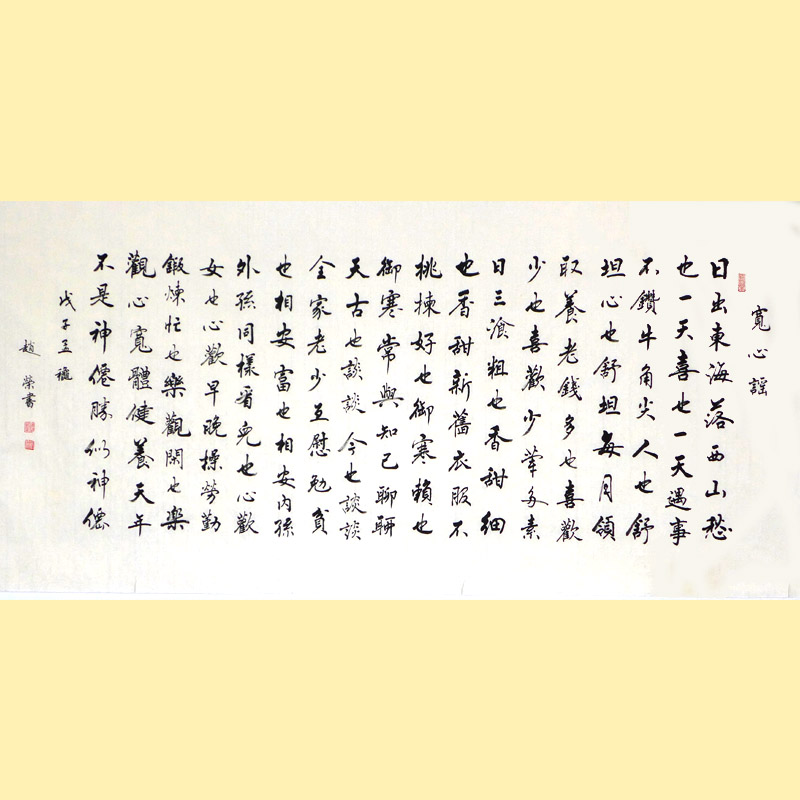 寬心謠
日出東海落西山愁
也一天喜也一天遇事
不鑽牛角尖人也舒
坦心也舒坦每月領
取養老錢多也喜歡
少也喜歡少葷多素
日三飡粗也香甜細
也香甜新舊衣服不
桃揀好也御寒賴也
御寒常與知己聊聊
天古也談談今也談談
全家老少互慰勉貧
也相安富也相安內孫
外孫同樣看兒也心歡
女也心歡早晚操勞勤
鍛煉忙也樂觀閑也樂
觀心寬體健養天年
不是神僊勝似神僊
戊子孟穐
趙榮書